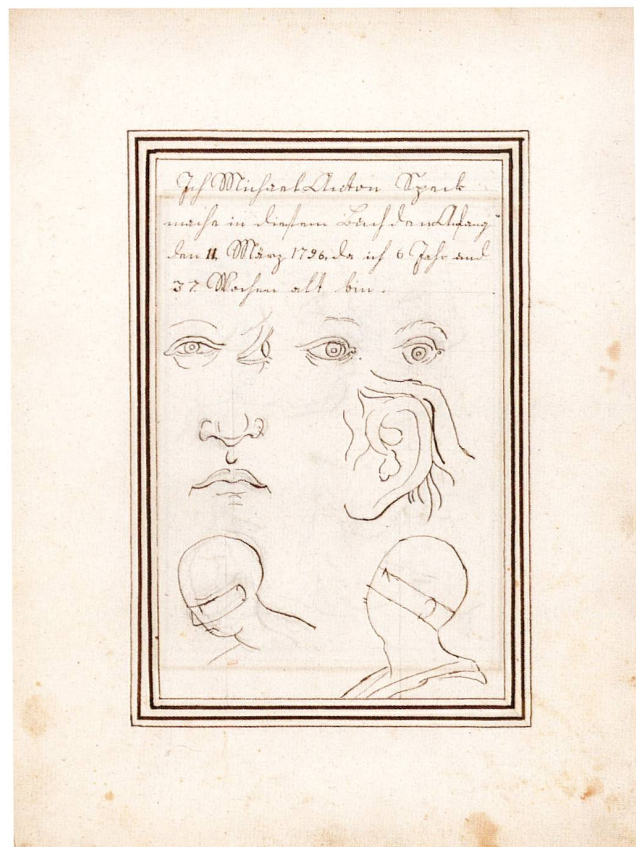 Ich Michael Anton Speck
mache in diesem Buch den Anfang
den 11. März 1796, da ich 6 Jahr und
37 Wochen alt bin.